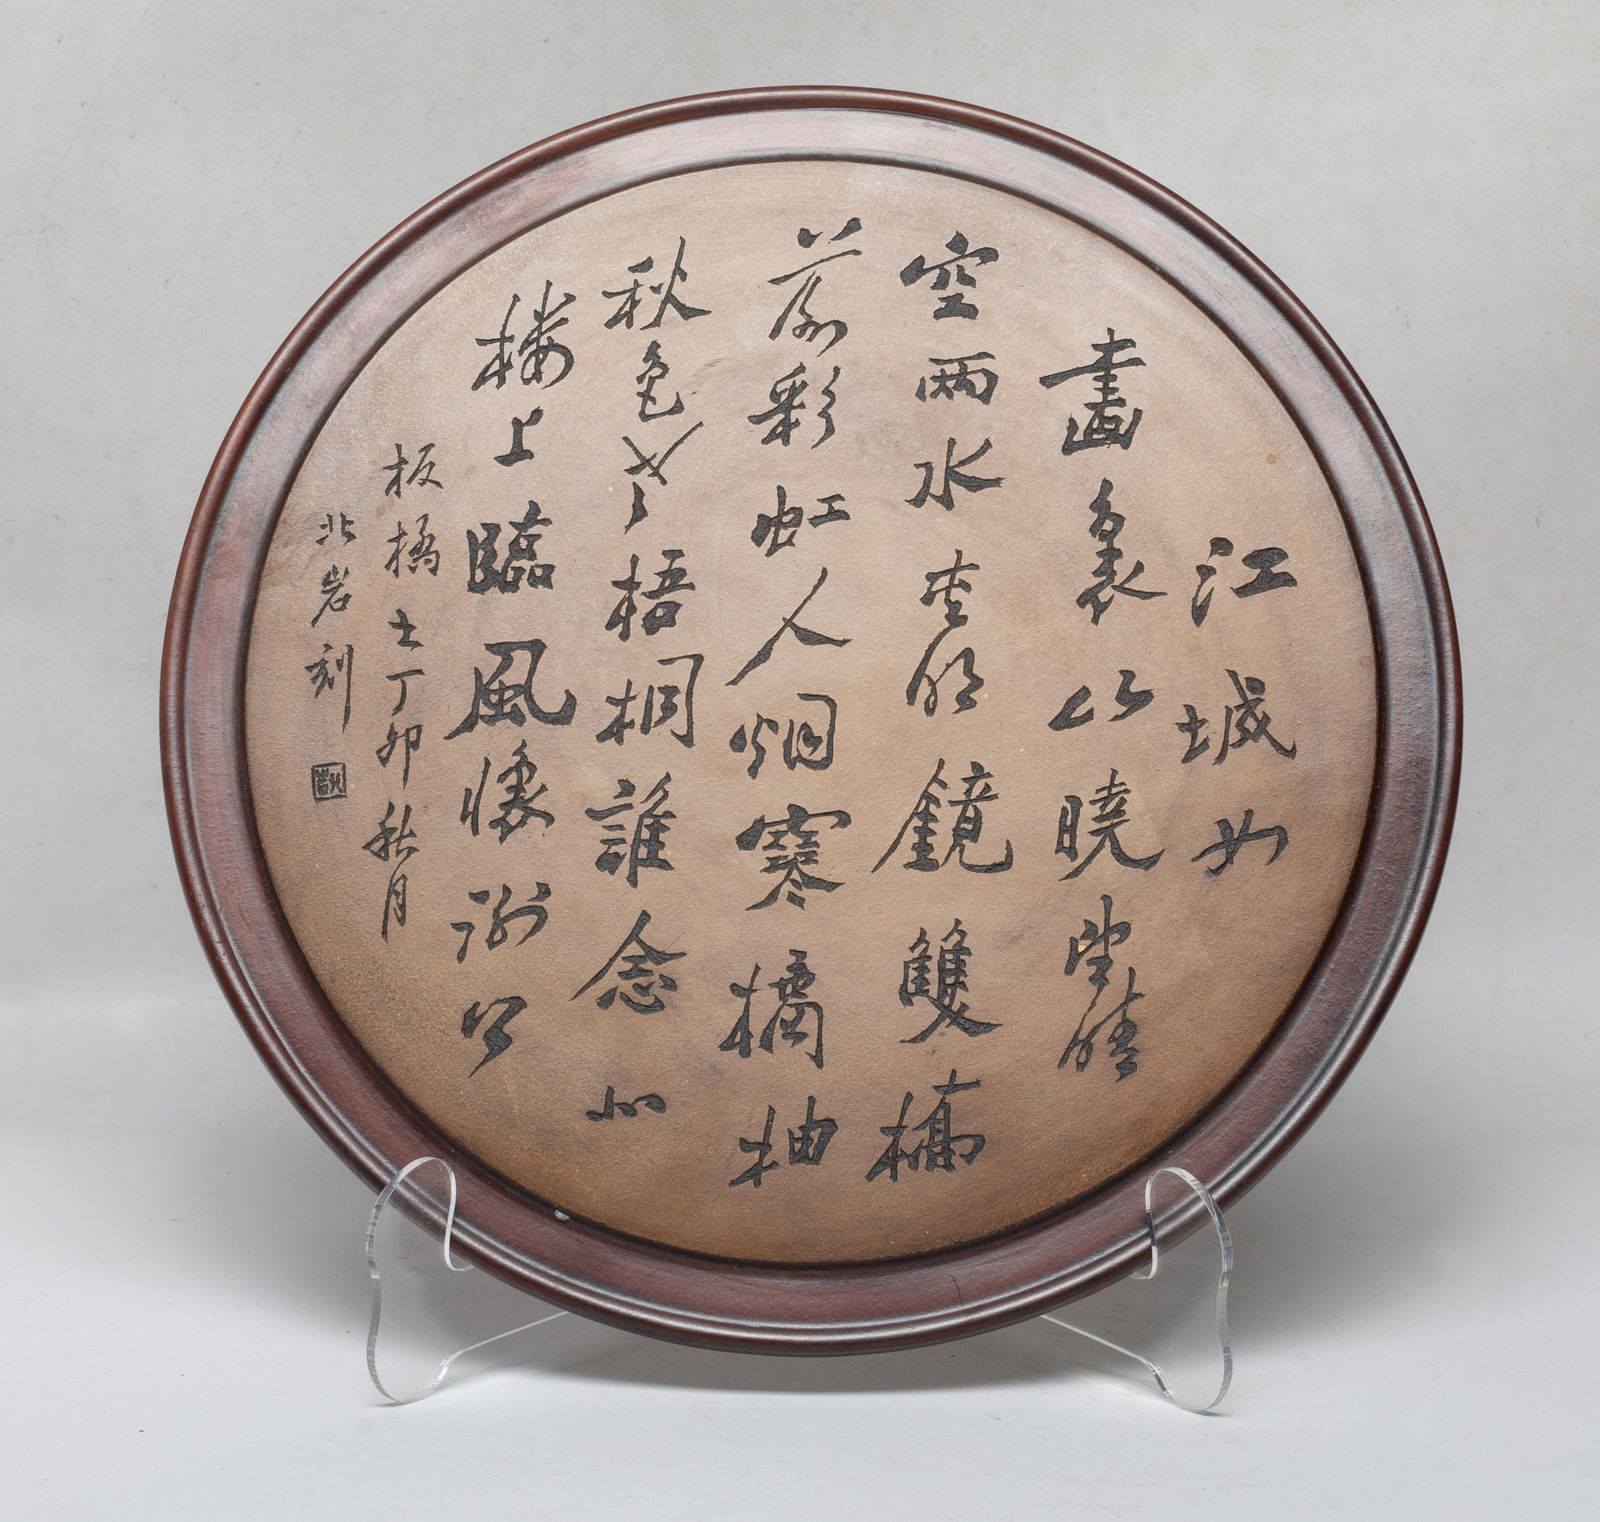 江城如
畫裏山曉望晴
空兩水夾明鏡雙橋
落彩虹人烟寒橘柚
秋色老梧桐誰念北
樓上臨風懷謝公
板橋士丁卯秋月
北岩刻